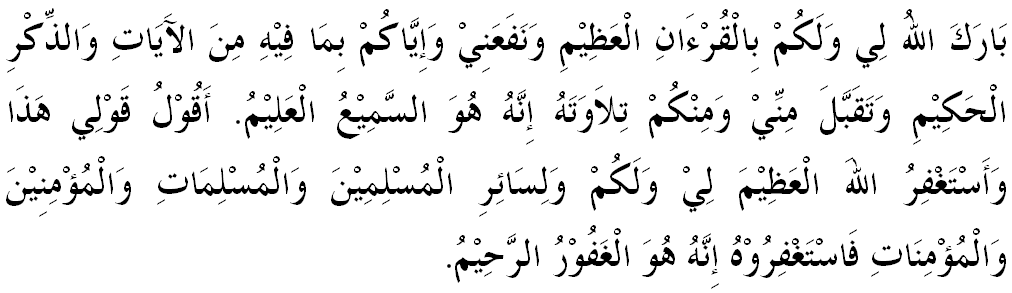 بَارَكَ اللهُ لِي وَلَكُمْ بِالْقُرْءَانِ الْعَظِيْمِ وَنَفَعَنِيْ وَإِيَّاكُمْ بِمَا فِيْهِ مِنَ الآيَاتِ وَالذِّكْرِ
الْحَكِيْمِ وَتَقَبَّلَ مِنِّيْ وَمِنْكُمْ تِلاَوَتَهُ إِنَّهُ هُوَ السَّمِيْعُ الْعَلِيْمُ. أَقُوْلُ قَوْلِي هَذَا
وَأَسْتَغْفِرُ اللهَ الْعَظِيْمَ لِيْ وَلَكُمْ وَلِسَائِرِ الْمُسْلِمِيْنَ وَالْمُسْلِمَاتِ وَالْمُؤْمِنِيْنَ
وَالْمُؤْمِنَاتِ فَاسْتَغْفِرُوْهُ إِنَّهُ هُوَ الْغَفُوْرُ الرَّحِيْمُ.